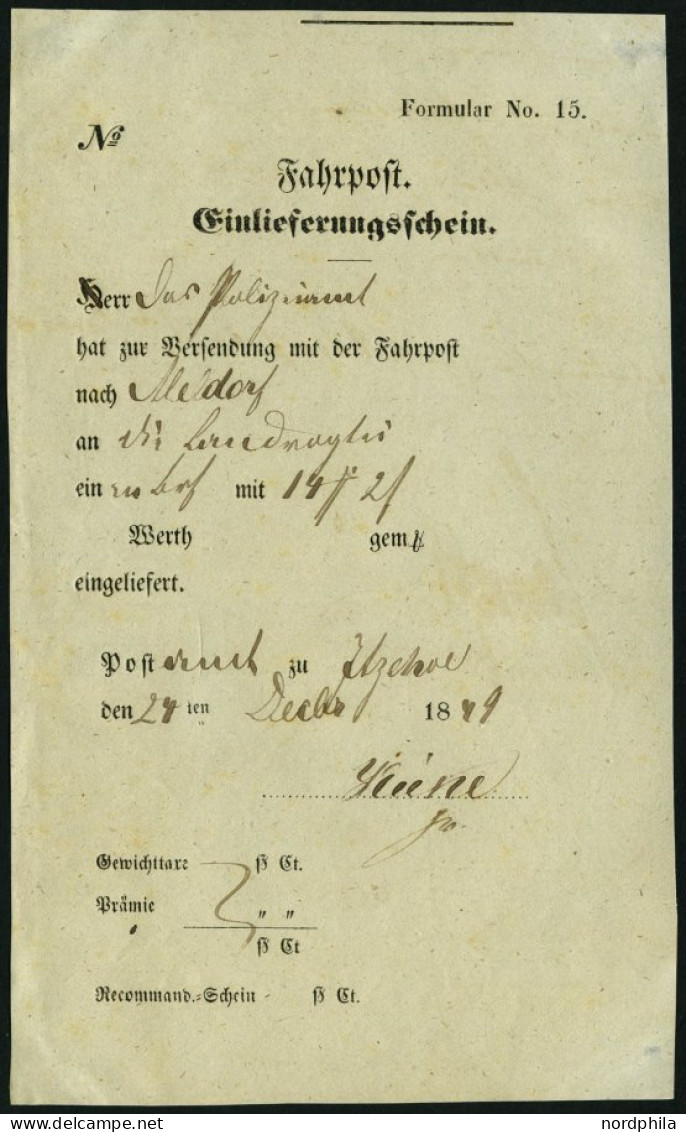 Formular No. 15.
No
Fahrpost.
Einlieferungsschein.
Herr das Polizeiamt
hat zur Versendung mit der Fahrpost
nach Meldorf
an die Landvogtei
ein mit 14 ß 2 ß
Werth gem
eingeliefert.
Postamt zu Itzehoe
den 24 ten Decbr 1849
Gewichttaxe ß Ct.
Prämie " "
ß Ct
Recommand.-Schein ß Ct.
nordphila